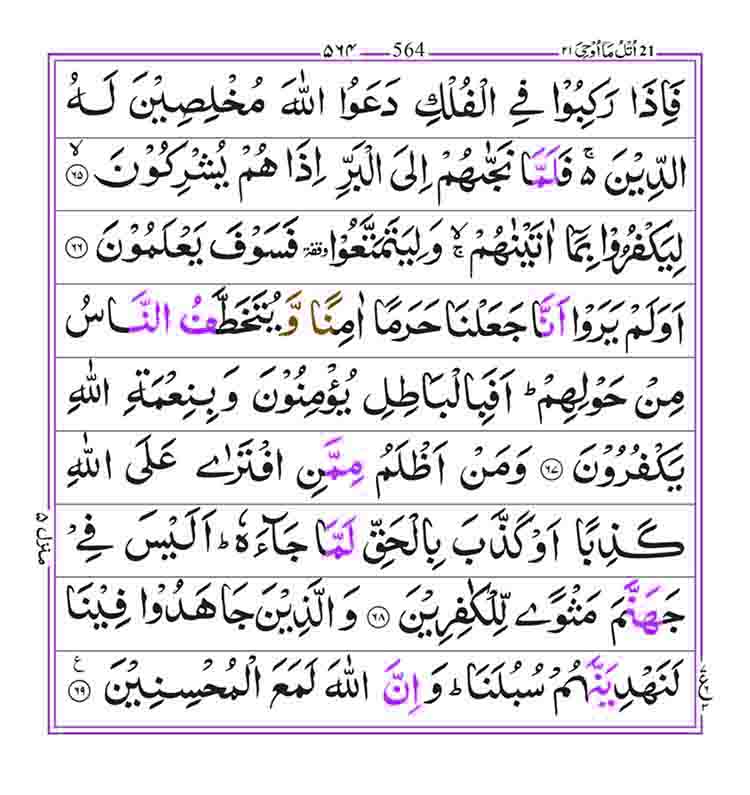 ۵۶۴ 564 ۲۱ اُتْلُ مَا اُوْحِیَ 21
فَاِذَا رَكِبُوْا فِی الْفُلْكِ دَعَوُا اللّٰهَ مُخْلِصِیْنَ لَهُ
الدِّیْنَ ۵ۚ فَلَمَّا نَجّٰىهُمْ اِلَى الْبَرِّ اِذَا هُمْ یُشْرِكُوْنَ ۙ﴿۶۵﴾
لِیَكْفُرُوْا بِمَاۤ اٰتَیْنٰهُمْ ۚۙ وَ لِیَتَمَتَّعُوْا وقفة فَسَوْفَ یَعْلَمُوْنَ ﴿۶۶﴾
اَوَلَمْ یَرَوْا اَنَّا جَعَلْنَا حَرَمًا اٰمِنًا وَّ یُتَخَطَّفُ النَّاسُ
مِنْ حَوْلِهِمْ ؕ اَفَبِالْبَاطِلِ یُؤْمِنُوْنَ وَ بِنِعْمَةِ اللّٰهِ
یَكْفُرُوْنَ ﴿۶۷﴾ وَ مَنْ اَظْلَمُ مِمَّنِ افْتَرٰى عَلَى اللّٰهِ
كَذِبًا اَوْ كَذَّبَ بِالْحَقِّ لَمَّا جَآءَهٗ ؕ اَلَیْسَ فِیْ
جَهَنَّمَ مَثْوًى لِّلْكٰفِرِیْنَ ﴿۶۸﴾ وَ الَّذِیْنَ جَاهَدُوْا فِیْنَا
لَنَهْدِیَنَّهُمْ سُبُلَنَا ؕ وَ اِنَّ اللّٰهَ لَمَعَ الْمُحْسِنِیْنَ ﴿۶۹﴾ ع
منزل ۵